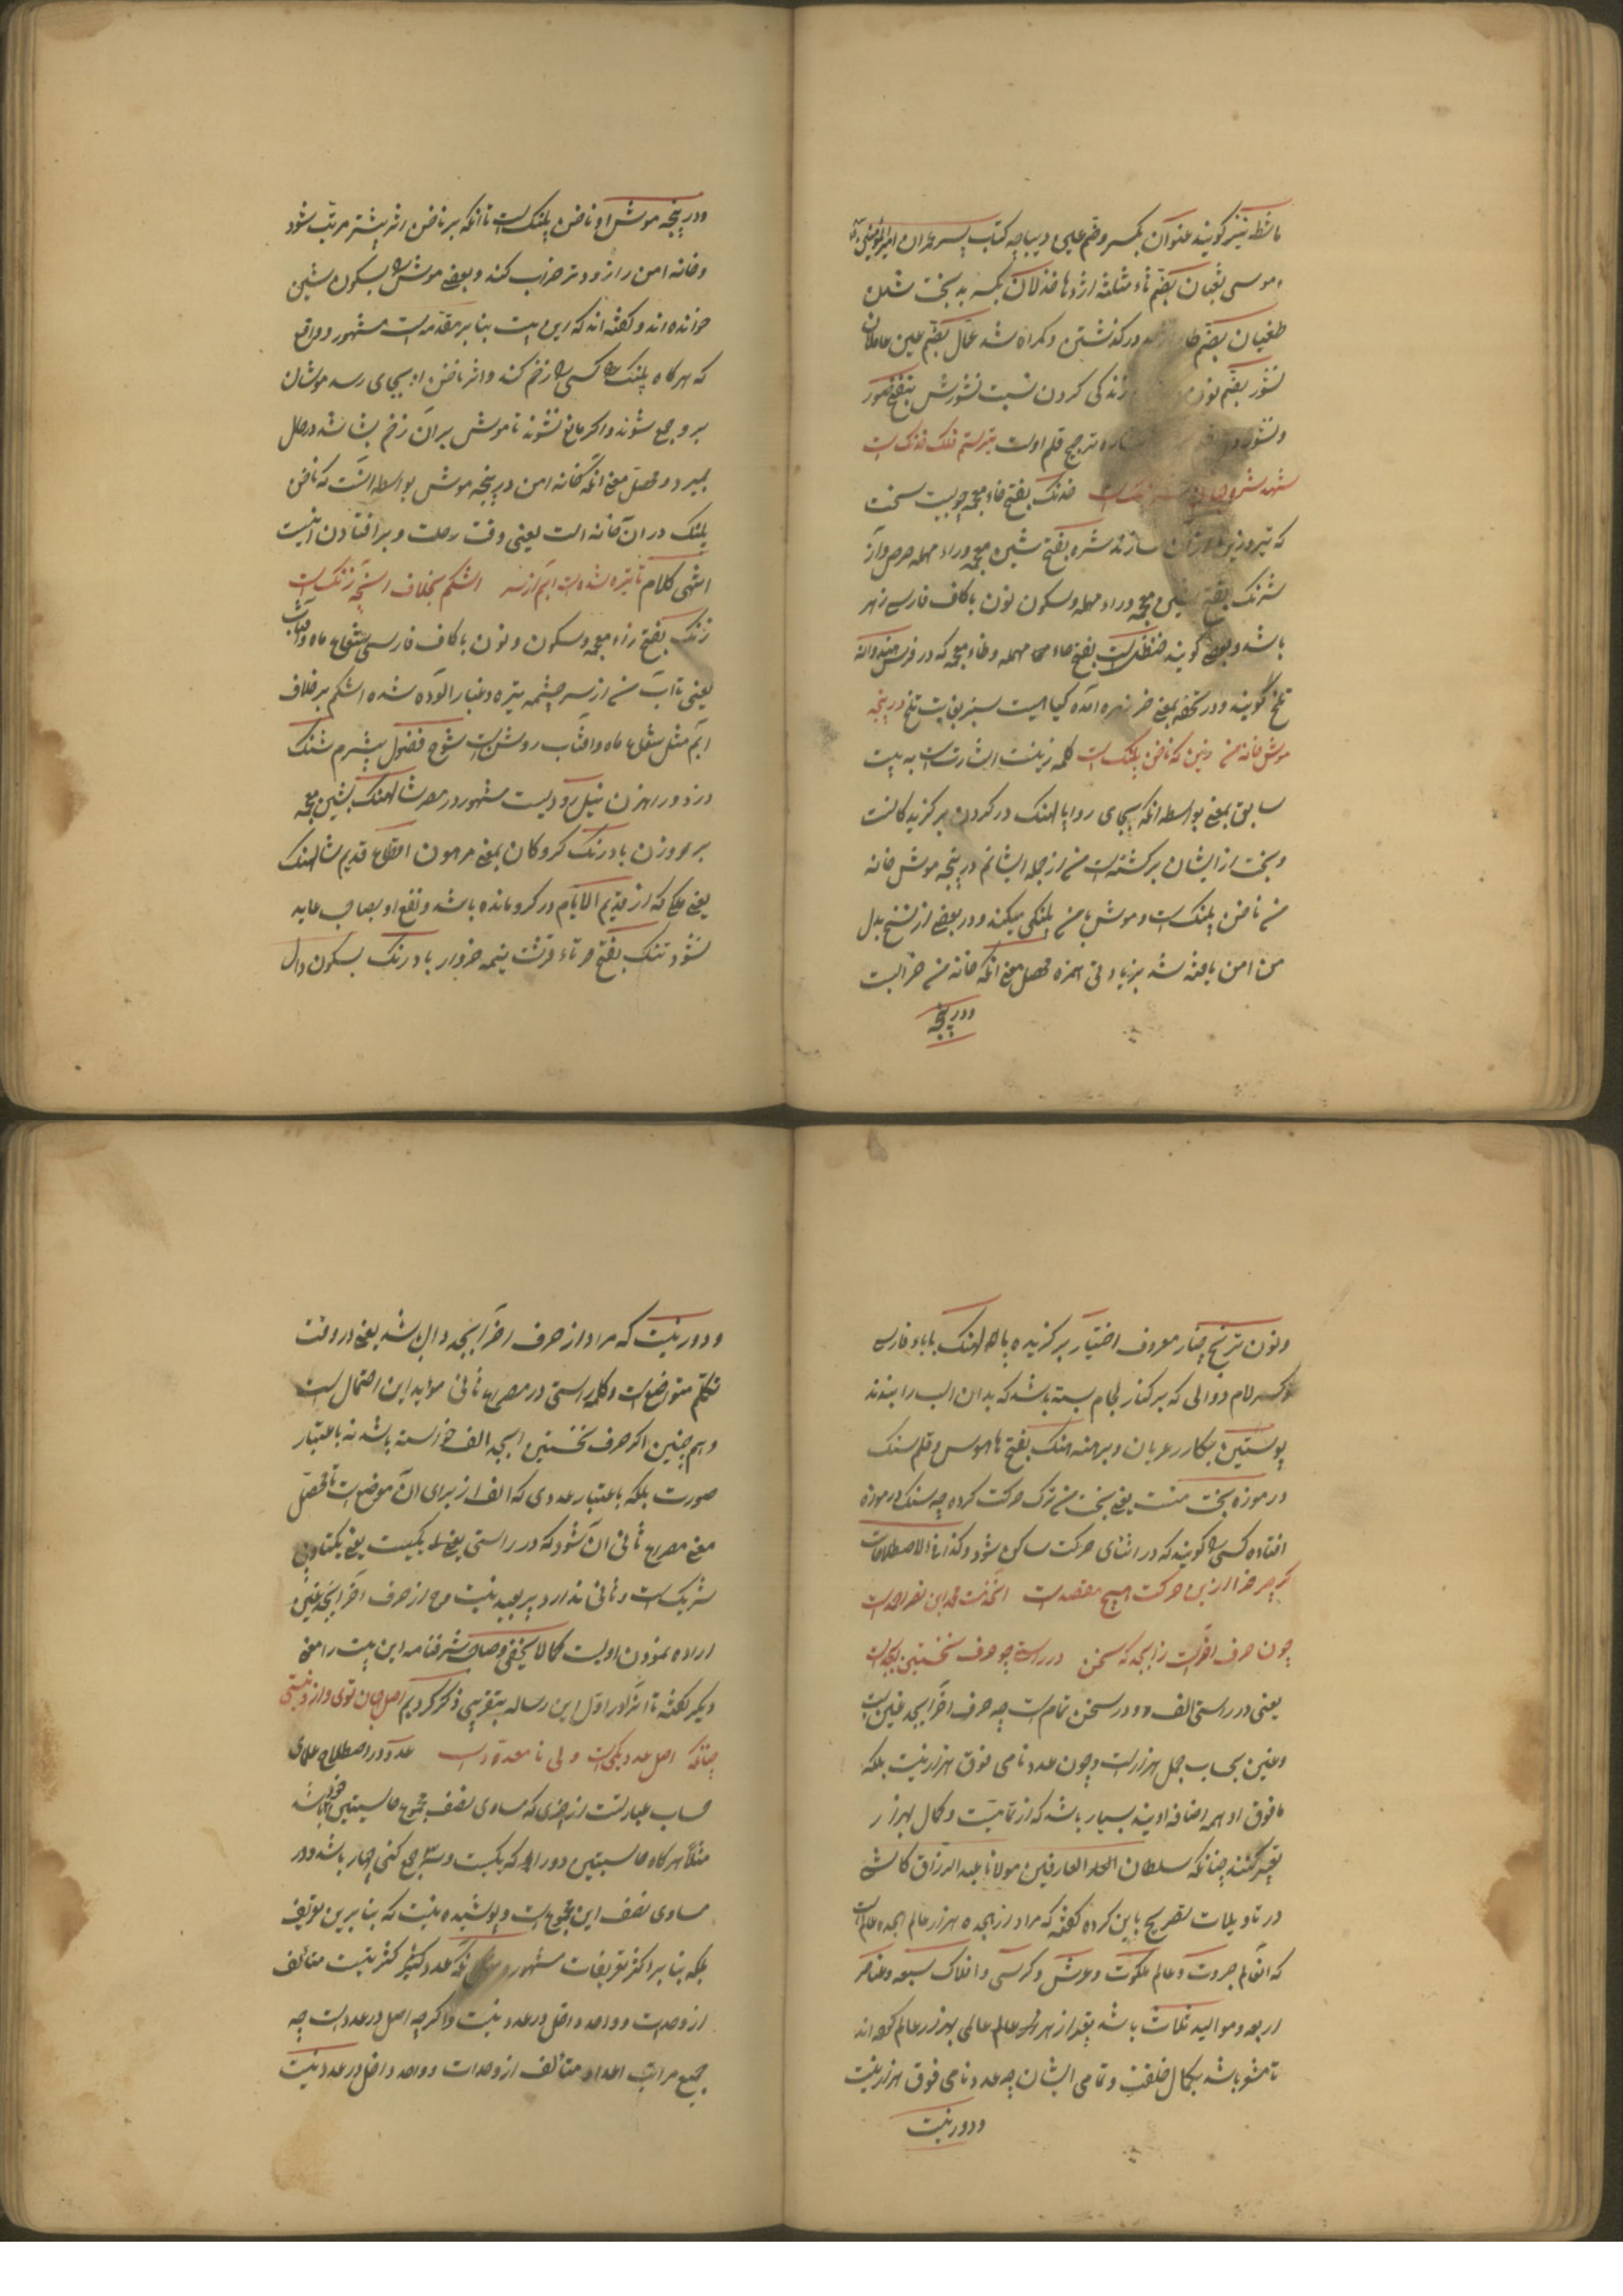 ماشطه نیز گویند عنوان بکسر و ضم علیی دیباچه کتاب پسر عمران امیر المؤمنین
موسی ثعبان بضم ثاء مثلثه اژدها خذلان بکسر بد بخت شدن
طغیان بضم در گذشتن و گمراه شد عمال بضم عین عاملان
نشور بضم نون زندگی کردن نسبت نشورش بنفخ صور
ترجیح قلم اولست تیرستم فلک خدنک است
شهد خدنک بفتح خاء معجمه چوبیست سخت
که تیر و زین از ان سازند شره بفتح شین معجمه وراء مهمله حرص و آز
شرنک بفتح شین معجمه وراء مهمله وسکون نون با کاف فارسی زهر
باشد و بعضی گویند حنظلست بفتح حاء مهمله وظاء معجمه که در فرس هندوانه
تلخ گویند و در تحفه بمعنی خر زهره آمده گیاهیست سبز بغایت تلخ در پنجه
موش خانه من زین که ناخن پلنک است کلمه زینت اشارتست به بیت
سابق بمعنی بواسطه انکه بجای روا پالهنک در کردن برگزیدگانست
وبخت از ایشان برگشته است من از جمله ایشانم در پنجه موش خانه
من ناخن پلنکست وموش با من پلنکی میکند و در بعضی از نسخ بدل
من امن یافته شد بزیادتی همزه محصل معنی انکه خانه من خرابست
ودر پنجه
ودر پنجه موش او ناخن پلنکست تا انکه بر ناخن اثر بیشتر مرتب شود
وخانه امن را زودتر خراب کند و بعضی موش را بسکون شین
خوانده اند و گفته اند که این بیت بنابر مقدمه است مشهور و واقع
که هرگاه پلنک کسی را زخم کند و اثر ناخن او بجای رسد موشان
برو جمع شوند و اگر مانع نشوند تا موش بران زخم بشاشد در حال
بمیرد و محصل معنی انکه خانه امن در پنجه موش بواسطه انست که ناخن
پلنک در ان خانه است یعنی وقت رحلت و بر افتادن انیست
انتهی کلام تا تیره شدست ابم از سر اشکم بخلاف انچه زنک است
زنک بفتح زاء معجمه وسکون ونون با کاف فارسی شعاع ماه وافتاب
یعنی تا آب من از سر چشمه تیره و غبار الوده شده اشکم بر خلاف
ابم مثل شعاع ماه وافتاب روشن است شوخ فضول بیشرم شنک
دزد و راهزن نیل رودیست مشهور در مصر شالهنک بشین معجمه
بر وزن بادرنک کروکان بمعنی مرهون اقطاع قدیم شالهنک
یعنی ملکی که از قدیم الایام در کرو مانده باشد و نفع او بصاحب عاید
نشود تنک بفتح تاء قرشت نیمه خروار بادرنک بسکون دال
ونون ترنج چنار معروف اختیار برگزیده پالهنک بباء فارسی
وکسر لام دوالی که بر کنار لجام بسته باشد که بدان اسب را بندند
پوستین بکار در عریان و برهنه هنک بفتح ها هوس و قلم سنک
در موزه بخت منست یعنی بخت من ترک حرکت کرده چه سنک در موزه
افتاده کسی را گویند که در اثنای حرکت ساکن شود و کذا فی الاصطلاحات
گر چرخ را ازین حرکت هیچ مقصدست
چون حرف اخرست ز ابجد که سخن در راستی چو حرف نخستین ابجدست
یعنی در راستی الف و در سخن تمامست چه حرف اخر ابجد غین است
وغین بحساب جمل هزارست وچون عدد نامی فوق هزار نیست بلکه
ما فوق او همه اضافه اویند بسیار باشد که از تمامیت و کمال بهزار
تعبیر کنند چنانکه سلطان العارفین مولانا عبد الرزاق کاشی
در تاویلات تصریح باین کرده گفته که مراد از هجده هزار عالم هجده عالم است
که انعالم جبروت وعالم ملکوت وعرش وکرسی وافلاک سبعه وعناصر
اربعه وموالید ثلاث باشد بعد از هر عالم عالمی بهزار عالم گفته اند
تا مشعر باشد بکمال خلقت و تمامی ایشان چه عدد نامی فوق هزار نیست
ودور نیست
ودور نیست که مراد از حرف اخر ابجد دال باشد یعنی در وقت
تکلم متواضع است وکلمه راستی در مصراع ثانی موید این احتمال است
وهم چنین اگر حرف نخستین ابجد الف خواسته باشد نه باعتبار
صورت بلکه باعتبار عددی که الف از برای ان موضوعست محصل
معنی مصراع ثانی ان شود که در راستی یکیست یعنی یکتا و بی
شریک است و ثانی ندارد پر بعید نیست وح از حرف اخر ابجد غین
اراده نمودن اولیست کما لا یخفی وصاحب شرفنامه این بیت را معنی
دیگر گفته تا انرا در اول این رساله بتقریبی ذکر کردیم اصل جهان توی و از و نیستی
چنانکه اصل عدد یکیست ولی نا معدودست عدد در اصطلاح علمای
حساب عبارتست از چیزی که مساوی نصف مجموع حاشیتین خود باشد
مثلا هرگاه حاشیتین دو را که یکیست وسه جمع کنی چهار باشد و دو
مساوی نصف این مجموع است وپوشیده نیست که بنابرین تعریف
بلکه بنابر اکثر تعریفات مشهوره عدد کثرتیست متالف
از وحدات و واحد داخل در عدد نیست واگر چه اصل در عددست چه
جمیع مراتب اعداد متالف از وحدات و واحد داخل در عدد نیست